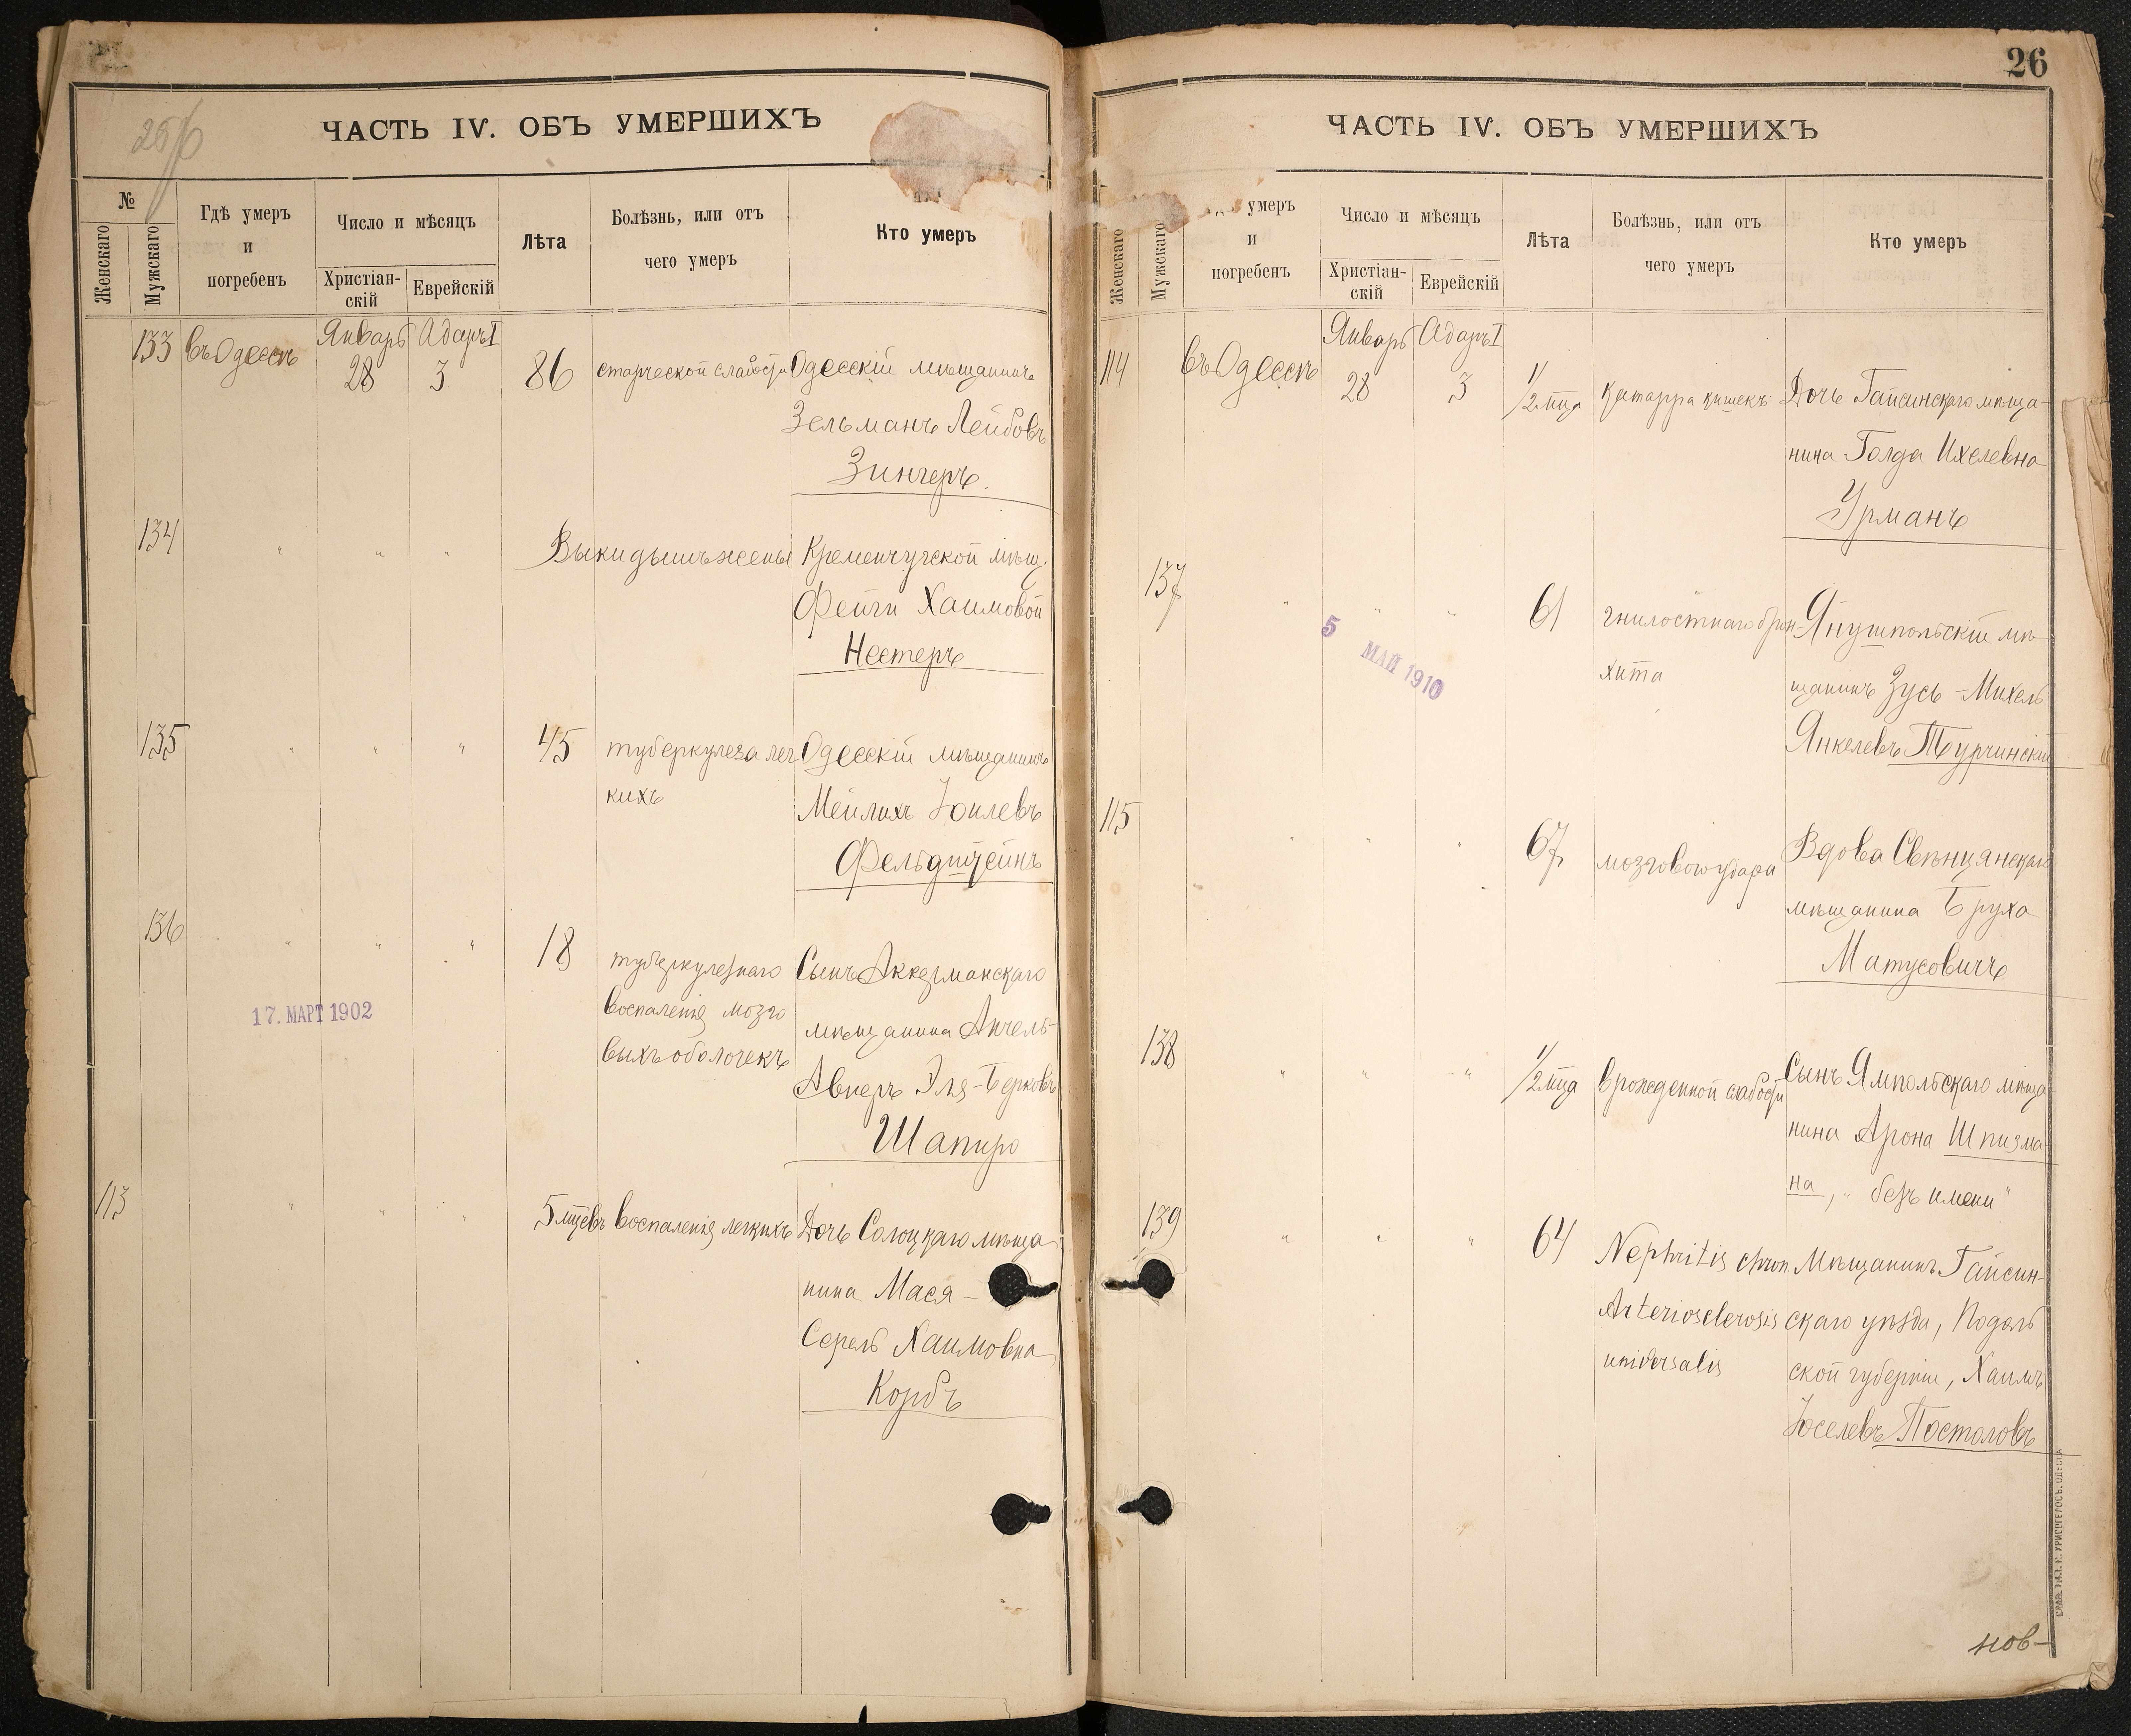 25/б
ЧАСТЬ IV. ОБЪ УМЕРШИХЪ
№
Женскаго
Мужскаго
Гдѣ умеръ
и
погребенъ
Число и мѣсяцъ
Христіан-
скій
Еврейскій
Лѣта
Болѣзнь, или отъ
чего умеръ
Кто умеръ
133 въ Одессѣ Январь 28 Адаръ I 3 86 старческой слабости Одесскій мѣщанинъ
Зельманъ Лейбовъ
Зингеръ.
134 " " " Выкидышъ жены Кременчугской мѣщ.
Фейги Хаимовой
Нестеръ
135 " " " 45 туберкулеза лег Одесскій мѣщанинъ
кихъ Мейлихъ Юилевъ
Фельдштейнъ
136 " " " 18 туберкулезнаго Сынъ Аккерманскаго
воспаленія мозго мѣщанина Анчель-
выхъ оболочекъ Авнеръ Эля-Берковъ
Шапиро
17. МАРТ 1902
113 " " " 5 мцевъ воспаленія легкихъ Дочь мѣща
нина Мася-
Серель Хаимовна
Корбъ
26
ЧАСТЬ IV. ОБЪ УМЕРШИХЪ
Женскаго
Мужскаго
умеръ
и
погребенъ
Число и мѣсяцъ
Христіан-
скій
Еврейскій
Лѣта
Болѣзнь, или отъ
чего умеръ
Кто умеръ
114 въ Одессѣ Январь 28 Адаръ I 3 1/2 мца катарра кишекъ Дочь Гайсинскаго мѣща-
нина Голда Ихелевна
Урманъ
137 " " " 61 гнилостнаго брон- Янушпольскій мѣ-
хита щанинъ Зусь-Михель
Янкелевъ Турчинскій
5 МАЙ 1910
115 " " " 67 мозгового удара Вдова Свѣнцянскаго
мѣщанина Бруха
Матусовичъ
138 " " " 1/2 мца врожденной слабости Сынъ Ямпольскаго мѣща
нина Арона Шпизма-
на, "безъ имени"
139 " " " 64 Nephritis chron Мѣщанинъ Гайсин-
Arteriosclerosis скаго уѣзда, Подоль
universalis ской губерніи, Хаимъ
Юселевъ Постоловъ
нов-